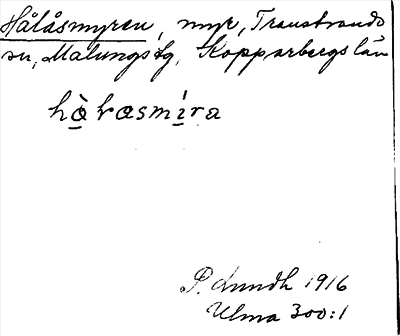 Hålåsmyren, myr, Transtrands
sn, Malungs tg, Kopparbergs län
hò̱ƕasmí̱ra
P. Lundh 1916
Ulma 300:1